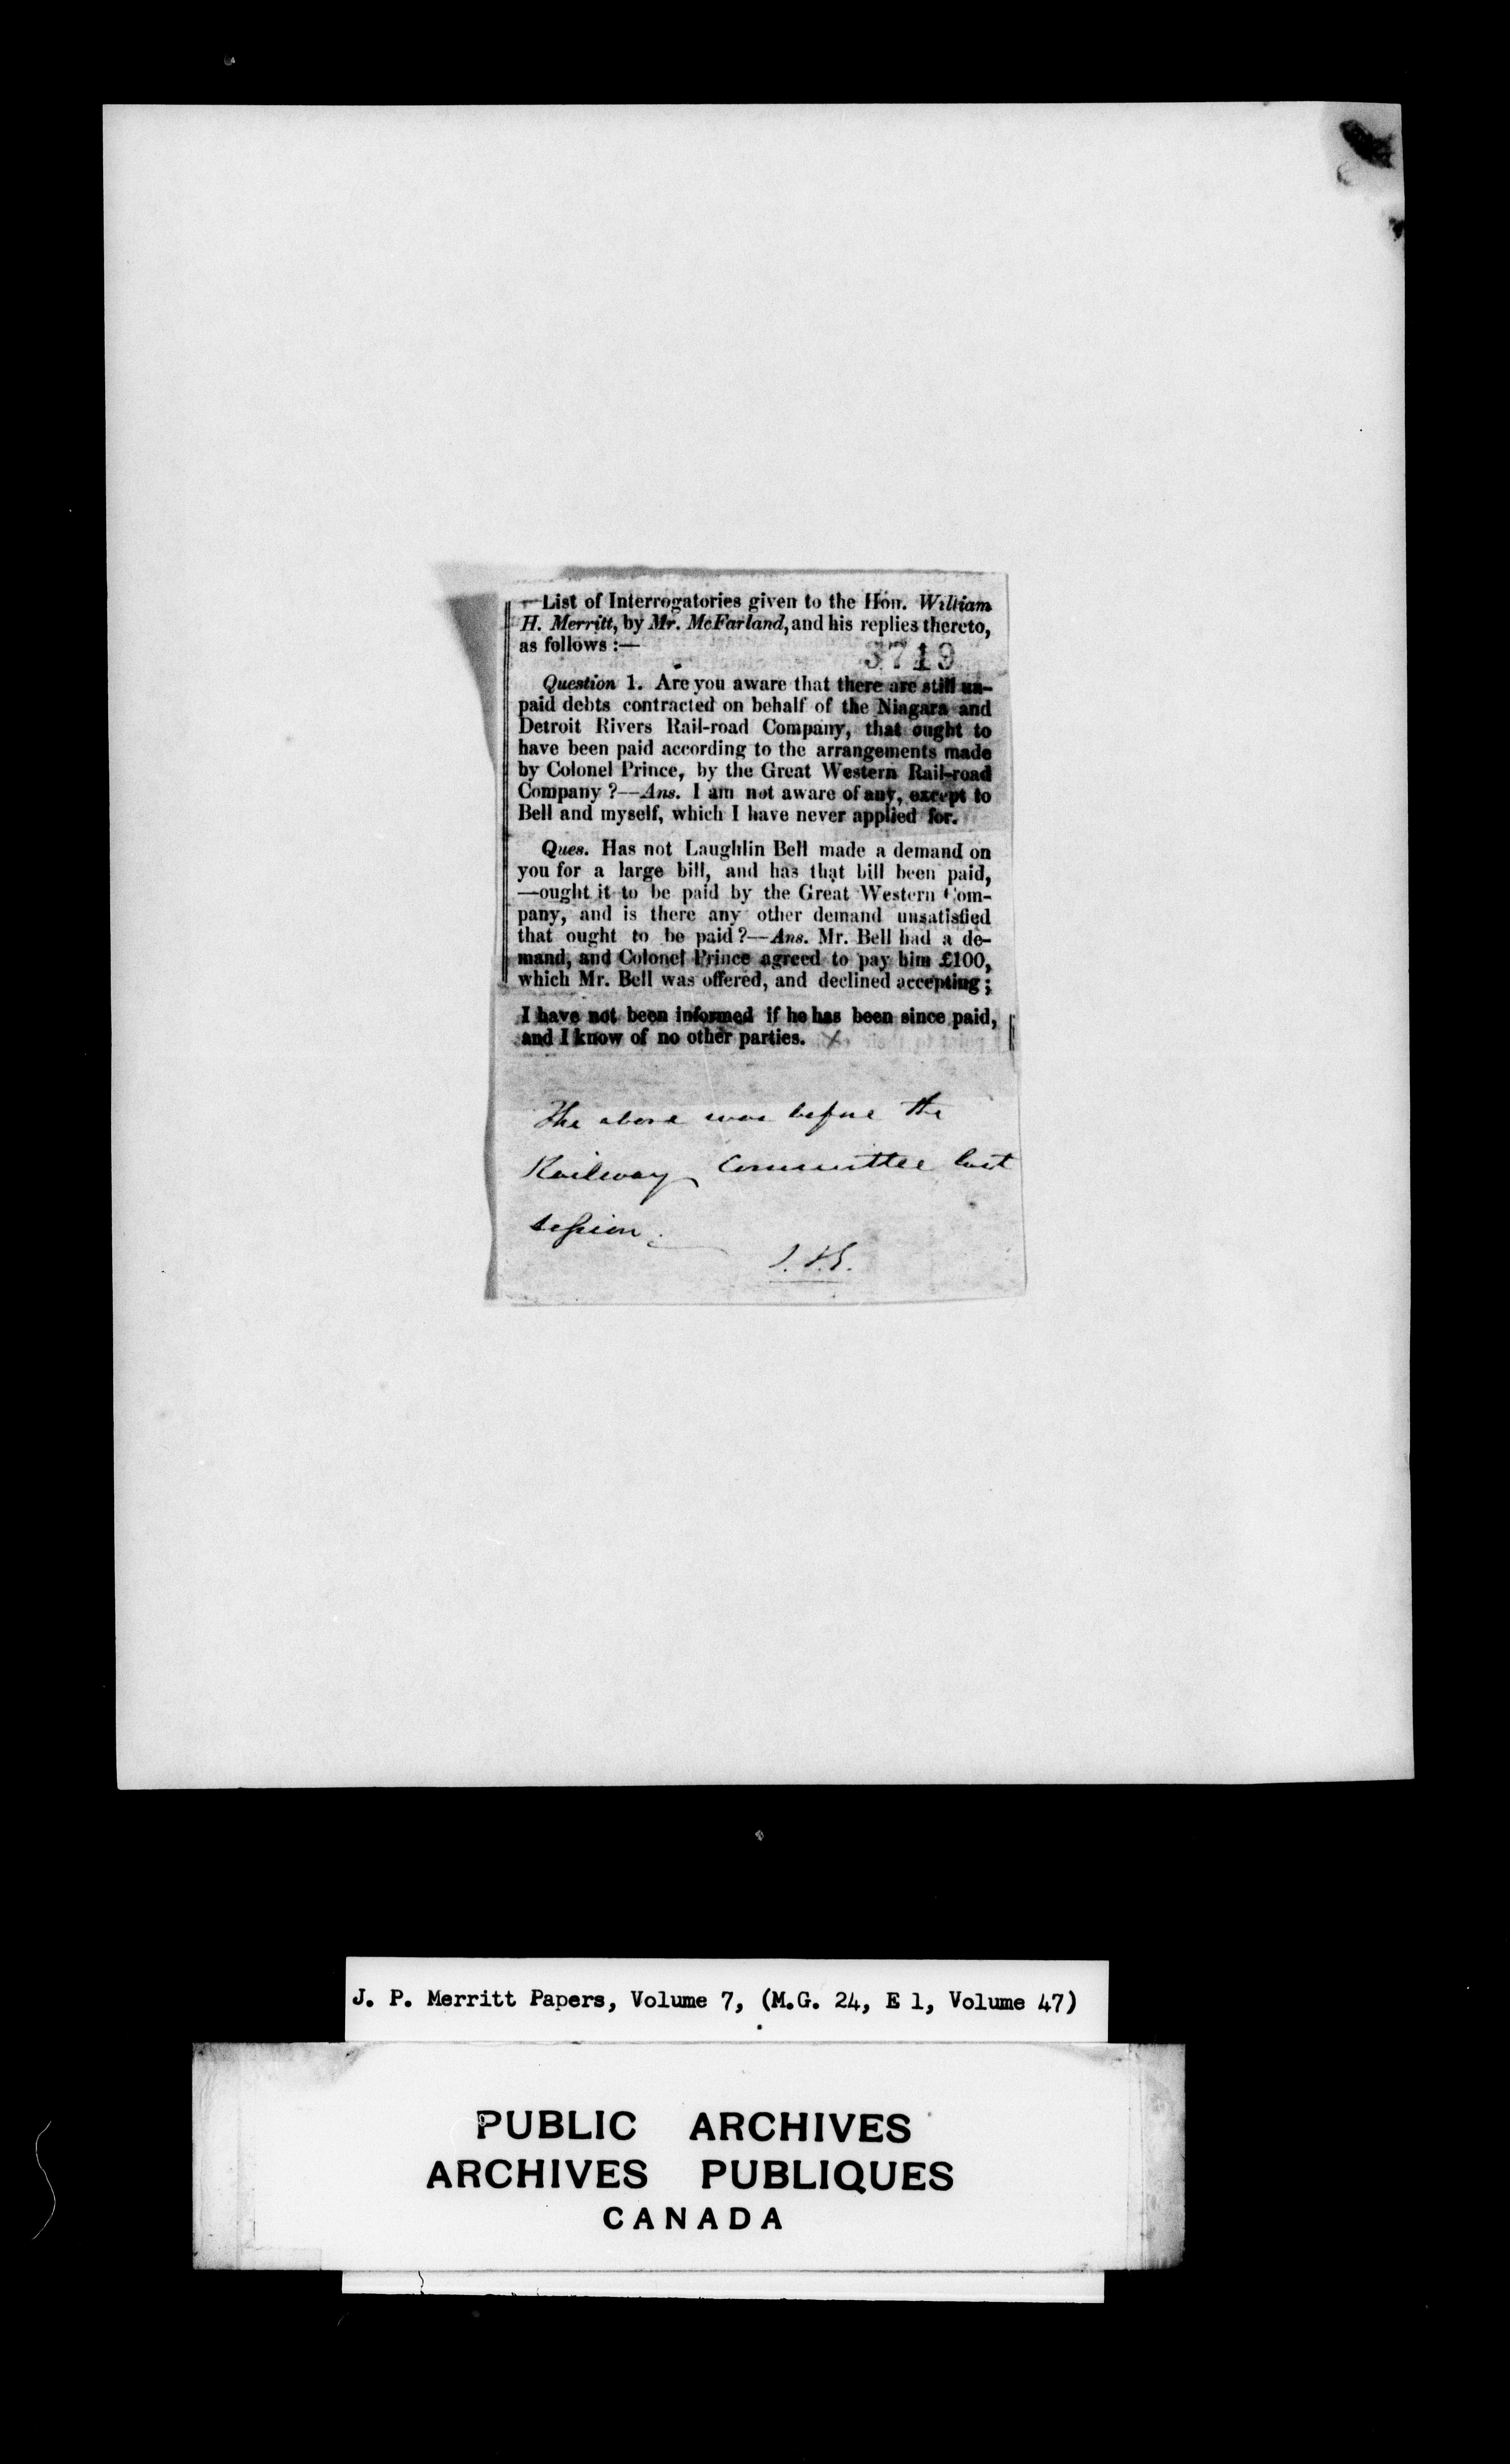 —List of Interrogatories given to the Hon. William
H. Merritt, by Mr. McFarland, and his replies thereto,
as follows :—
3719
Question 1. Are you aware that there are still un-
paid debts contracted on behalf of the Niagara and
Detroit Rivers Rail-road Company, that ought to
have been paid according to the arrangements made
by Colonel Prince, by the Great Western Rail-road
Company ?—Ans. I am not aware of any, except to
Bell and myself, which I have never applied for.
Ques. Has not Laughlin Bell made a demand on
you for a large bill, and has that bill been paid,
—ought it to be paid by the Great Western Com-
pany, and is there any other demand unsatisfied
that ought to be paid ?—Ans. Mr. Bell had a de-
mand, and Colonel Prince agreed to pay him £100,
which Mr. Bell was offered, and declined accepting ;
I have not been informed if he has been since paid,
and I know of no other parties.
The above was before the
Railway Committee last
session.
J. P. Merritt Papers, Volume 7, (M.G. 24, E 1, Volume 47)
PUBLIC ARCHIVES
ARCHIVES PUBLIQUES
CANADA